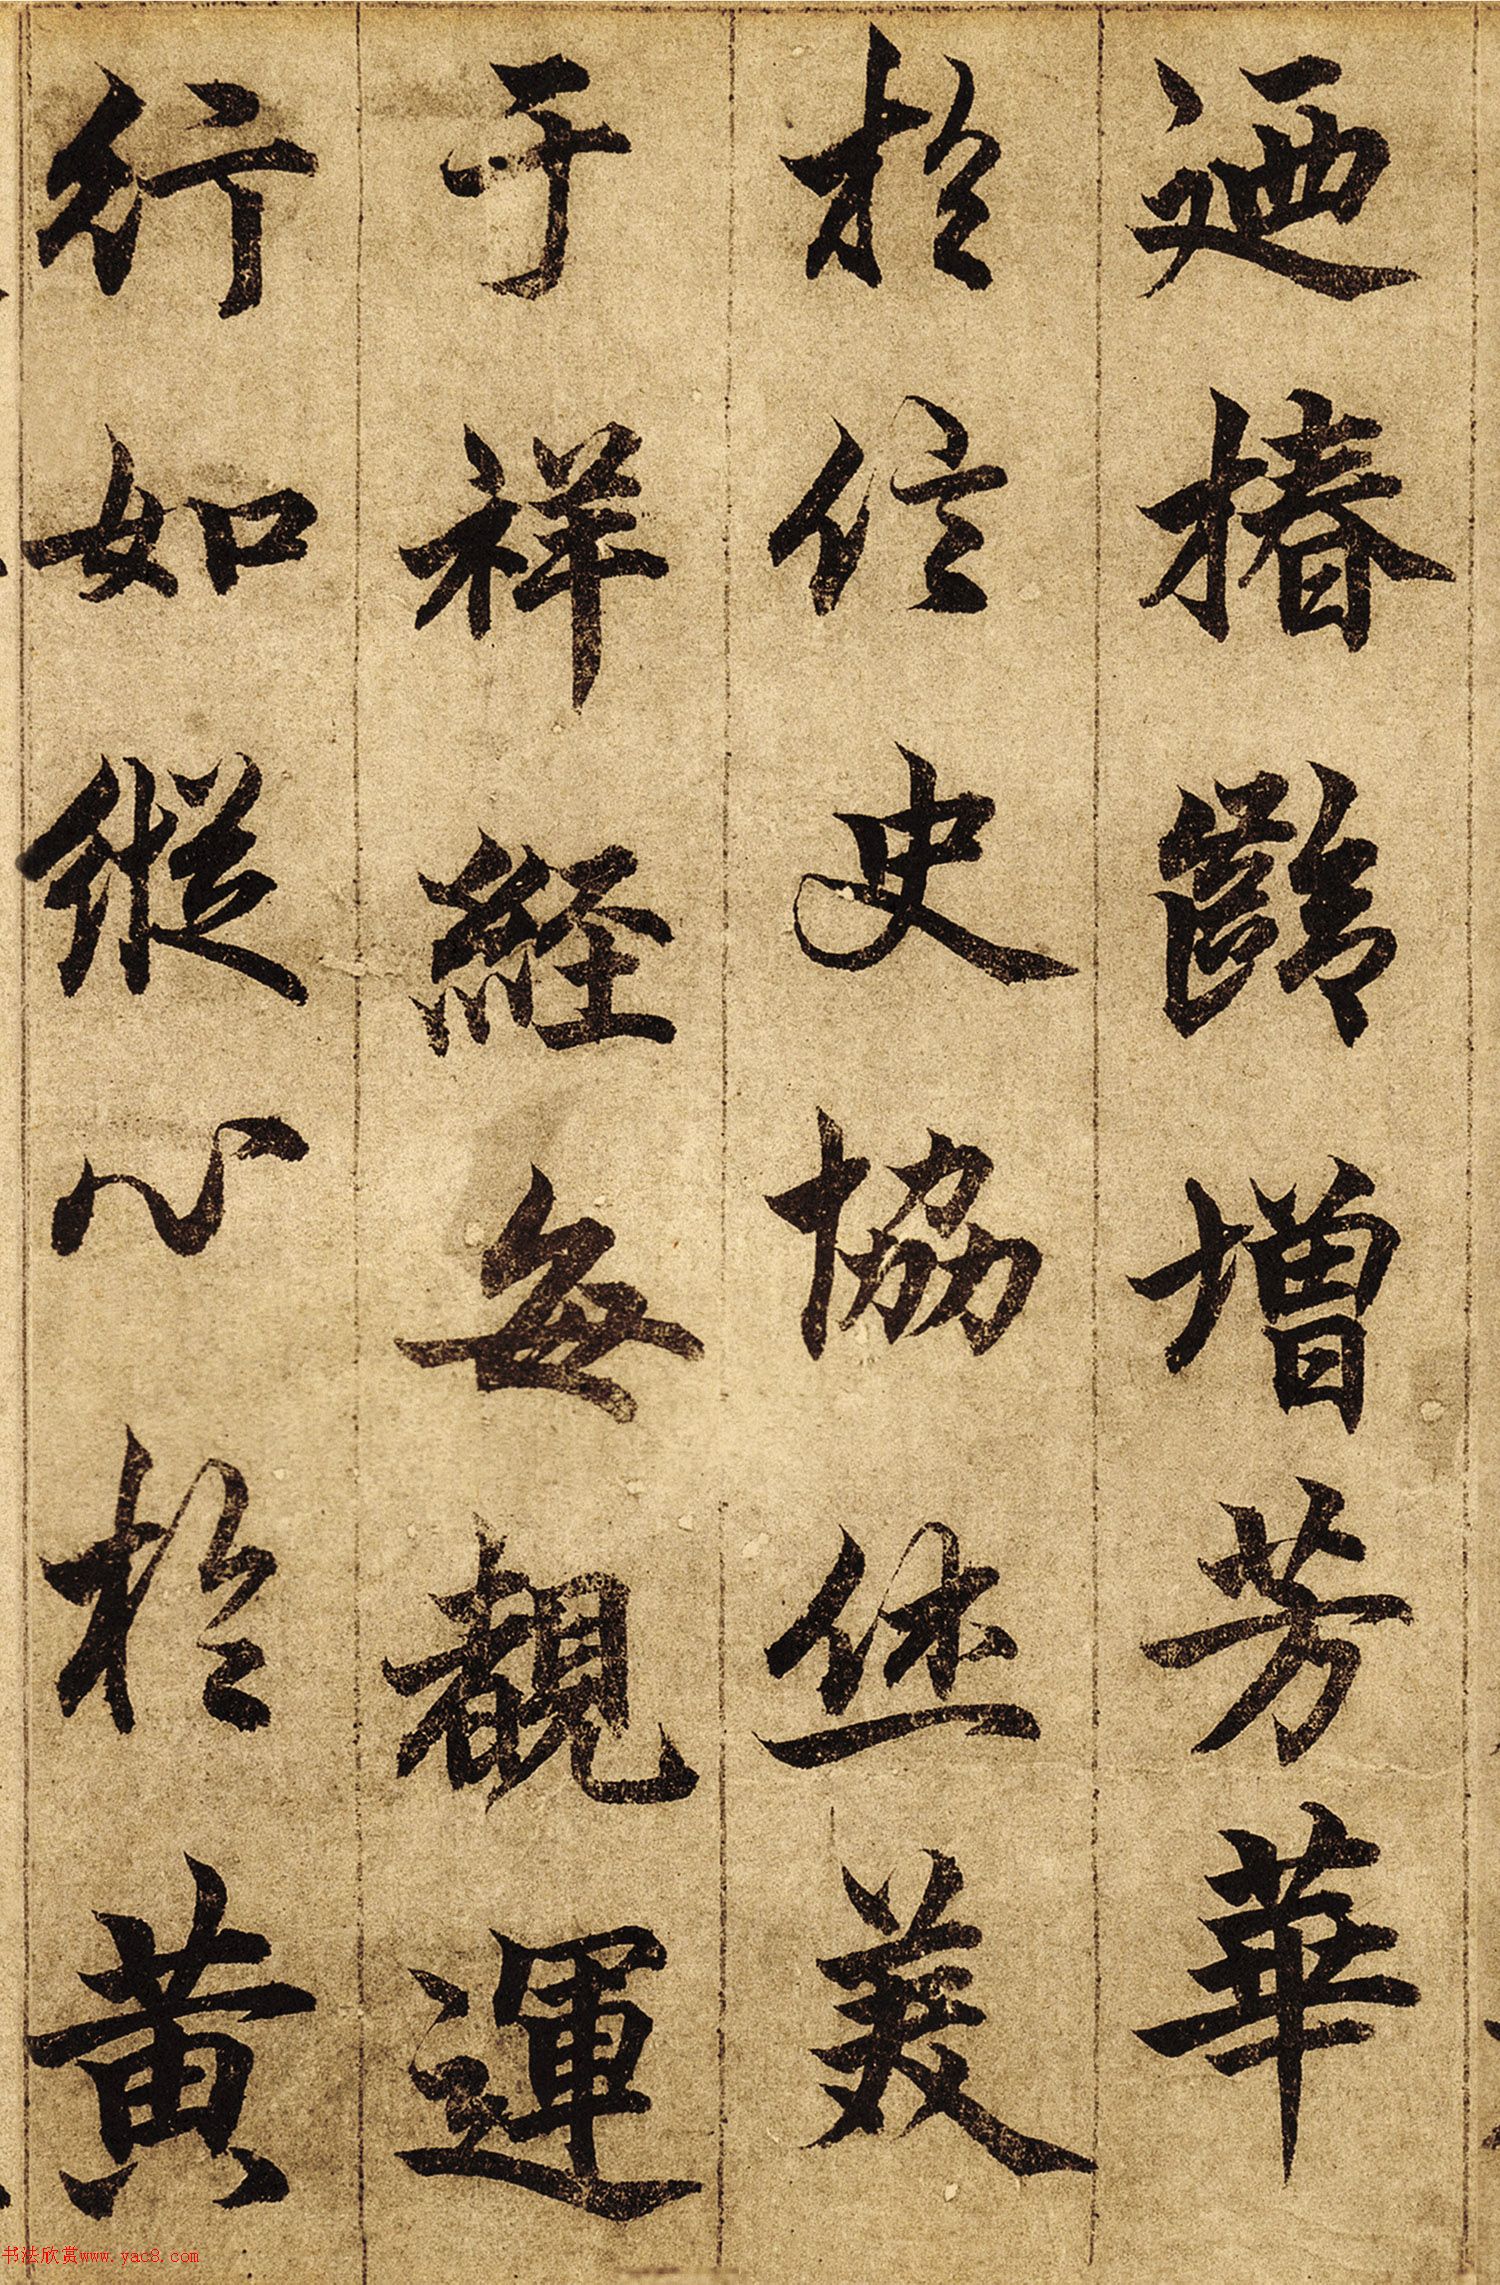 迺椿齡增芳華
於信史協烋美
于祥經每覩運
行如縱心於黃
书法欣赏www.yac8.com